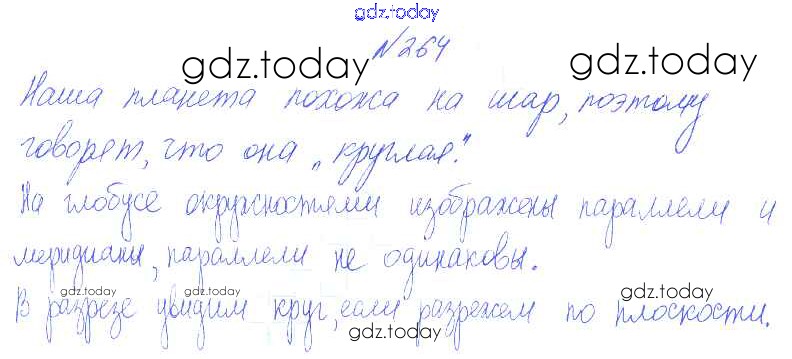 gdz.today
№264
gdz.today gdz.today
Наша планета похожа на шар, поэтому
говорят, что она „круглая".
На глобусе окружностями изображены параллели и
меридианы, параллели не одинаковы.
gdz.today gdz.today
В разрезе увидим круг, если разрежем по плоскости.
gdz.today